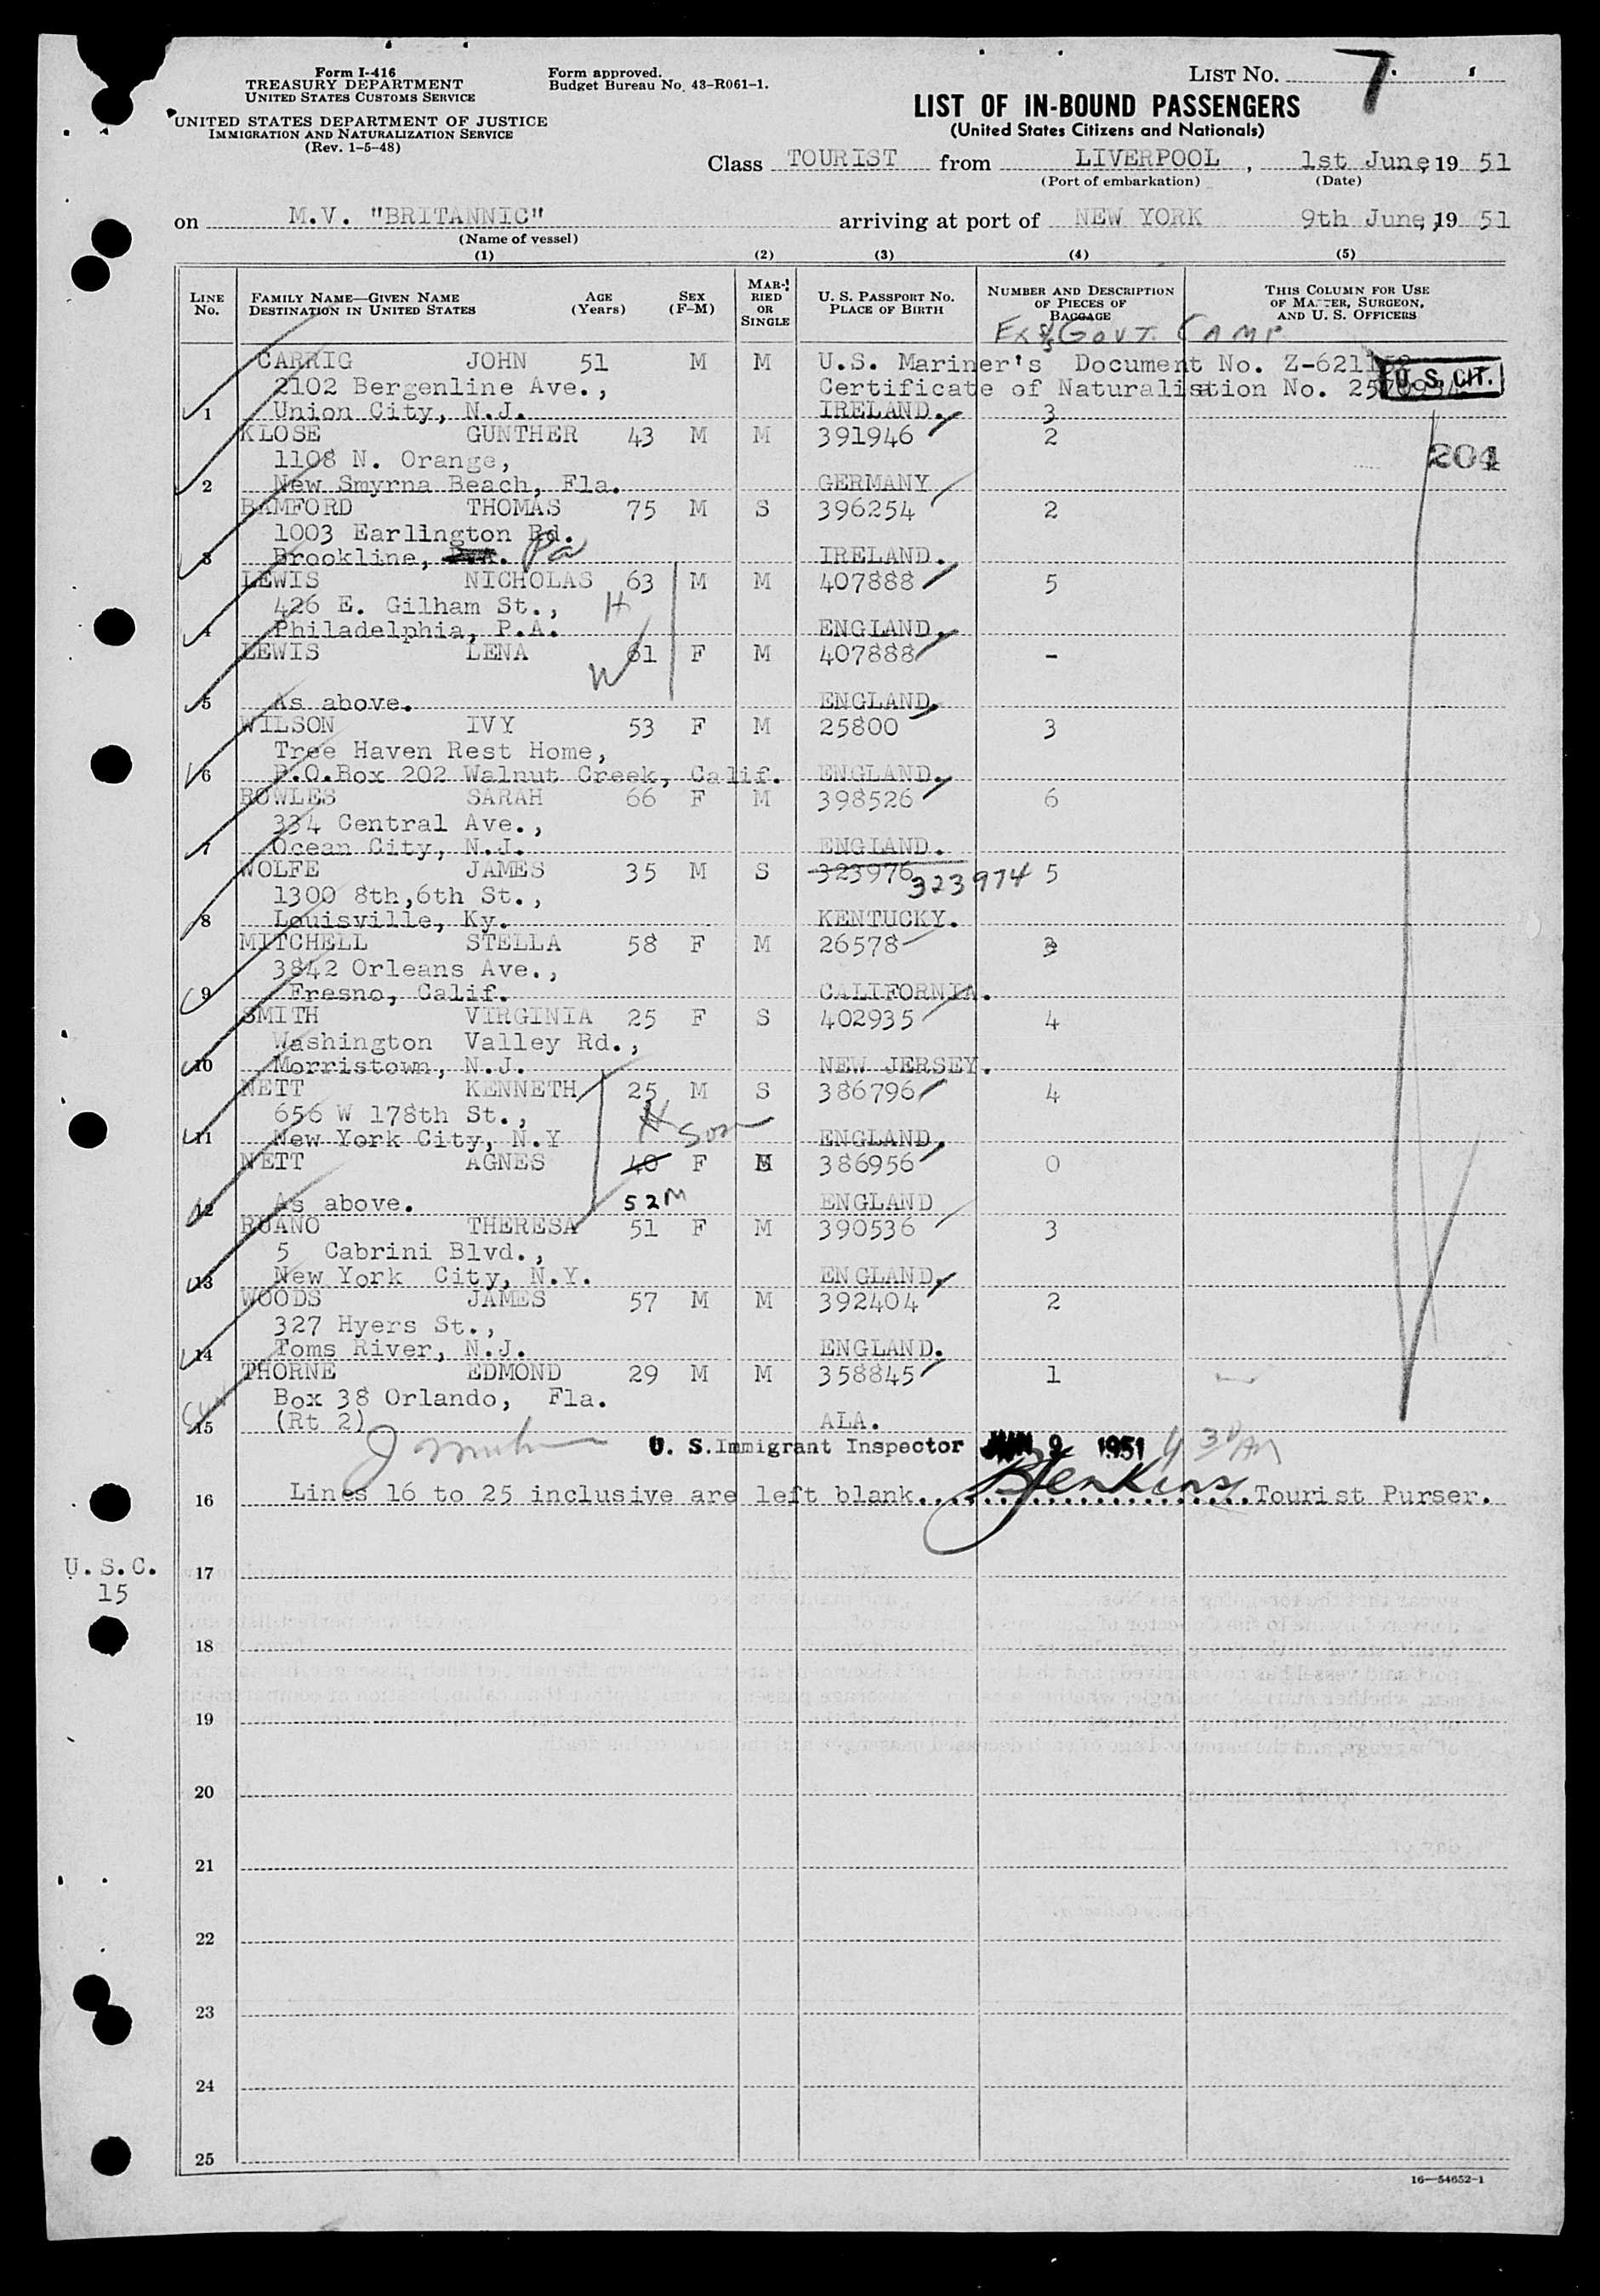 Form I-416
TREASURY DEPARTMENT
UNITED STATES CUSTOMS SERVICE
UNITED STATES DEPARTMENT OF JUSTICE
IMMIGRATION AND NATURALIZATION SERVICE
(Rev. 1-5-48)
Form approved.
Budget Bureau No. 43-R061-1.
LIST No. 7
LIST OF IN-BOUND PASSENGERS
(United States Citizens and Nationals)
Class TOURIST from LIVERPOOL, 1st June, 19 51
(Port of embarkation) (Date)
on M.V. "BRITANNIC" arriving at port of NEW YORK 9th June, 19 51
(Name of vessel)
(1) (2) (3) (4) (5)
LINE No. FAMILY NAME—GIVEN NAME DESTINATION IN UNITED STATES AGE (Years) SEX (F-M) MARRIED OR SINGLE U. S. PASSPORT No. PLACE OF BIRTH NUMBER AND DESCRIPTION OF PIECES OF BAGGAGE THIS COLUMN FOR USE OF MASTER, SURGEON, AND U. S. OFFICERS
GOVT. CAMP
CARRIG JOHN 51 M M U.S. Mariner's Document No.
2102 Bergenline Ave., Certificate of Naturalisation No. U. S. CIT.
1 Union City, N.J. IRELAND. 3
KLOSE GUNTHER 43 M M 391946 2
1108 N. Orange, 204
2 New Smyrna Beach, Fla. GERMANY
BAMFORD THOMAS 75 M S 396254 2
1003 Earlington Rd.
3 Brookline, Pa IRELAND.
LEWIS NICHOLAS 63 M M 407888 5
426 E. Gilham St., H
4 Philadelphia, P.A. ENGLAND.
LEWIS LENA 61 F M 407888 -
W
5 As above. ENGLAND.
WILSON IVY 53 F M 25800 3
Tree Haven Rest Home,
6 P.O.Box 202 Walnut Creek, Calif. ENGLAND.
BOWLES SARAH 66 F M 398526 6
334 Central Ave.,
7 Ocean City, N.J. ENGLAND.
WOLFE JAMES 35 M S 323976 323974 5
1300 8th,6th St.,
8 Louisville, Ky. KENTUCKY.
MITCHELL STELLA 58 F M 26578 3
3842 Orleans Ave.,
9 Fresno, Calif. CALIFORNIA.
SMITH VIRGINIA 25 F S 402935 4
Washington Valley Rd.,
10 Morristown, N.J. NEW JERSEY.
NETT KENNETH 25 M S 386796 4
656 W 178th St., H son
11 New York City, N.Y ENGLAND.
NETT AGNES 40 F M 386956 0
12 As above. 52 M ENGLAND
RUANO THERESA 51 F M 390536 3
5 Cabrini Blvd.,
13 New York City, N.Y. ENGLAND.
WOODS JAMES 57 M M 392404 2
327 Hyers St.,
14 Toms River, N.J. ENGLAND.
THORNE EDMOND 29 M M 358845 1
Box 38 Orlando, Fla.
15 (Rt 2) ALA.
U. S. Immigrant Inspector JUN 9 1951 4 30 AM
16 Lines 16 to 25 inclusive are left blank. BJenkins Tourist Purser.
U.S.C.
15
17
18
19
20
21
22
23
24
25
16—54652-1